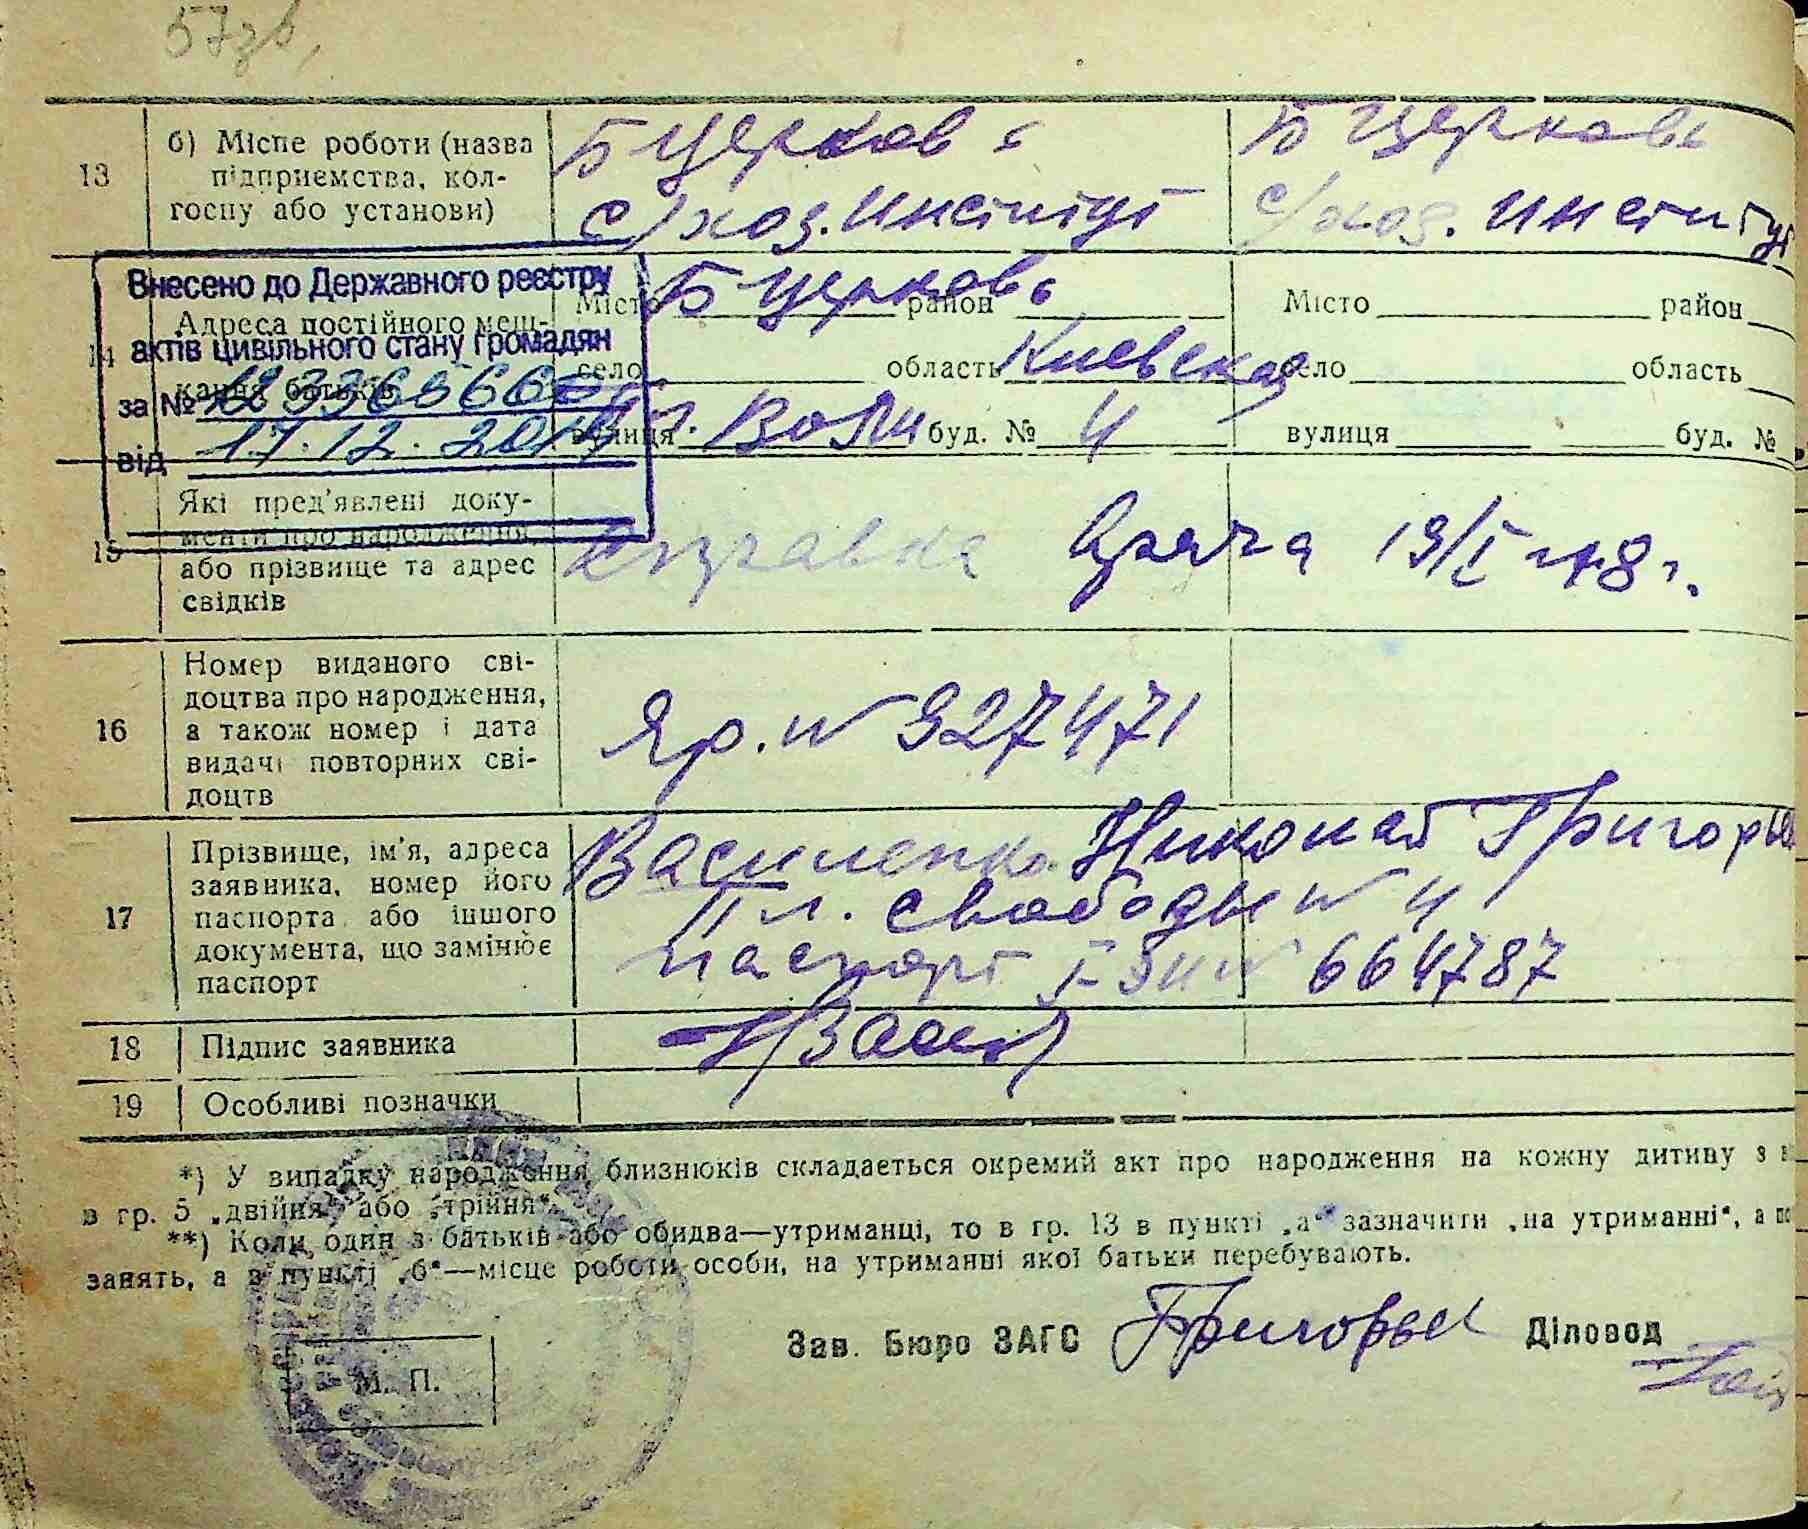 57зв,
13
б) Місце роботи (назва
підприємства, кол-
госпу або установи)
Б Церковь
с/хоз. Институт
Б Церковь
с/хоз. Институт
Внесено до Державного реєстру
актів цивільного стану громадян
за №
від 17.12.20
14
Адреса постійного меш-
кання батьків
Місто Б Церковь район
село область Киевская
вулиця буд. № 4
Місто район
село область
вулиця буд. №
15
Які пред'явлені доку-
менти про народження,
або прізвище та адрес
свідків
Справка врача 19/I 48 г.
16
Номер виданого сві-
доцтва про народження,
а також номер і дата
видачі повторних сві-
доцтв
Яр. № 327471
17
Прізвище, ім'я, адреса
заявника, номер його
паспорта або іншого
документа, що замінює
паспорт
Василенко Николай Григорьев
Пл. Свободы № 4
паспорт № 664787
18
Підпис заявника
19
Особливі позначки
*) У випадку народження близнюків складається окремий акт про народження на кожну дитину з
в гр. 5 „двійня“ або „трійня“.
**) Коли один з батьків або обидва—утриманці, то в гр. 13 в пункті „а“ зазначити „на утриманні“, а
занять, а в пункті „б“—місце роботи особи, на утриманні якої батьки перебувають.
Зав. Бюро ЗАГС Діловод
М. П.